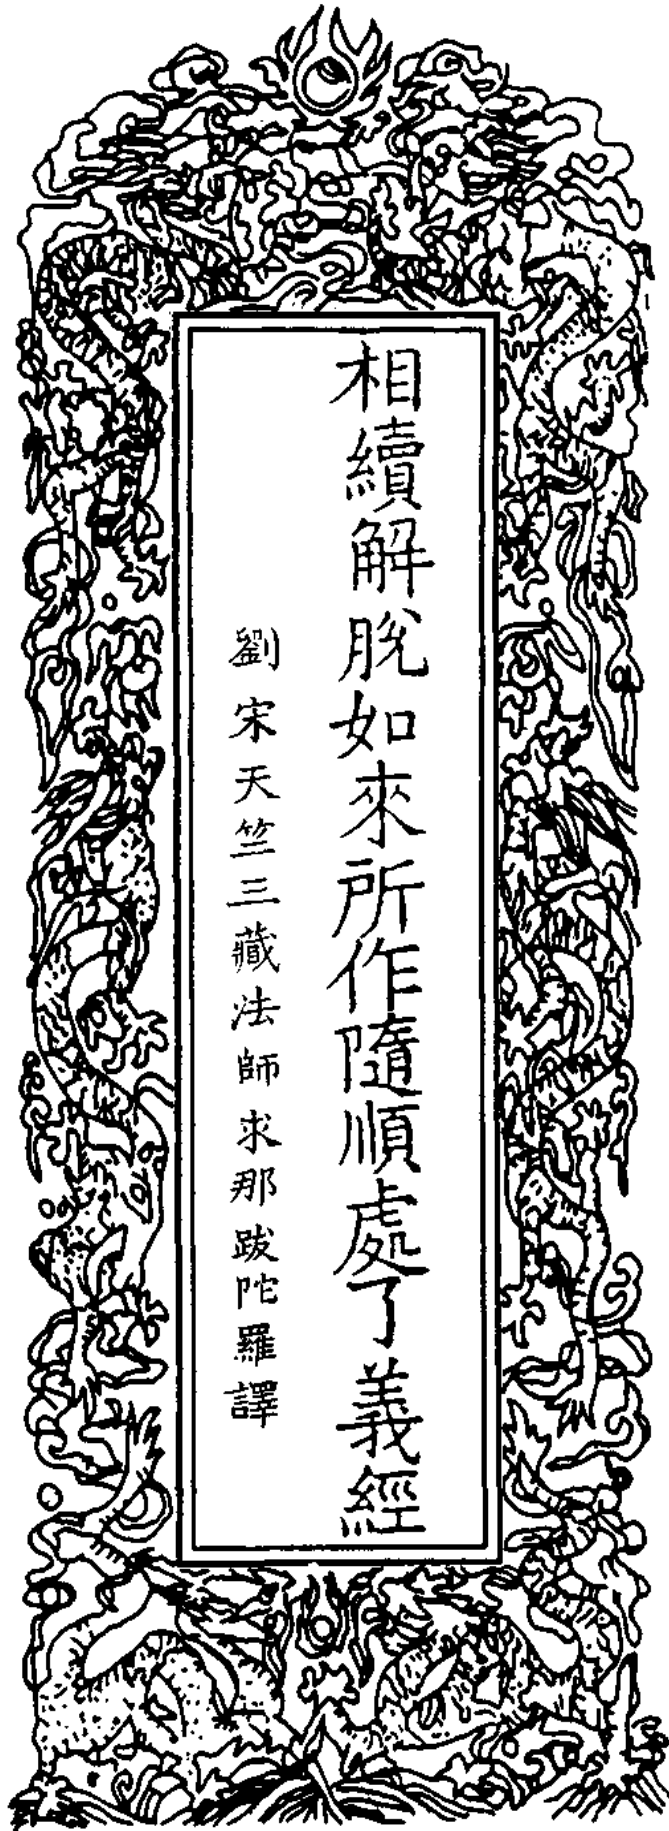 相續解脫如來所作隨順處了義經
劉宋天竺三藏法師求那跋陀羅譯